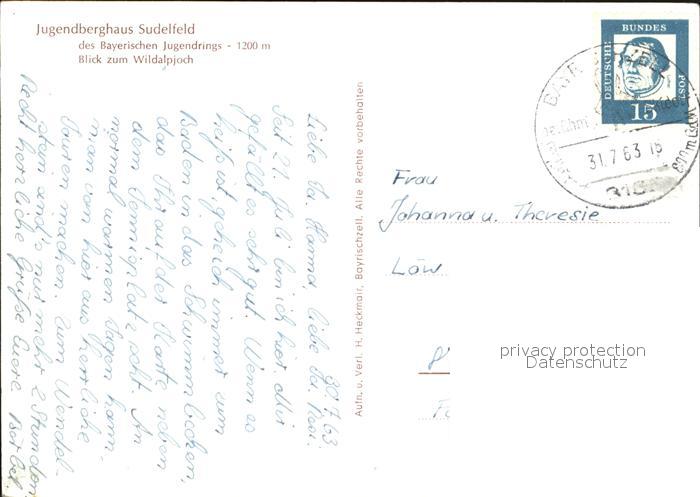 Jugendberghaus Sudelfeld
des Bayerischen Jugendrings - 1200 m
Blick zum Wildalpjoch
30.7.63
Liebe Ta. Hanna, liebe Ta. Resi!
Seit 21. Juli bin ich hier. Mir
gefällt es sehr gut. Wenn es
heiß ist, geh ich immer zum
Baden in das Schwimmbecken,
das Ihr auf der Karte neben
dem Tennisplatz seht. An
normal warmen Tagen kann
man von hier aus herrliche
Touren machen. Zum Wendel-
stein sind's nur mehr 2 Stunden.
Recht herzliche Grüße Eure Bärbel.
Aufn. u. Verl. H. Heckmair, Bayrischzell. Alle Rechte vorbehalten
DEUTSCHE
BUNDES
POST
15
31.7.63 18
800 m
Frau
Johanna u. Theresie
Löw
privacy protection
Datenschutz